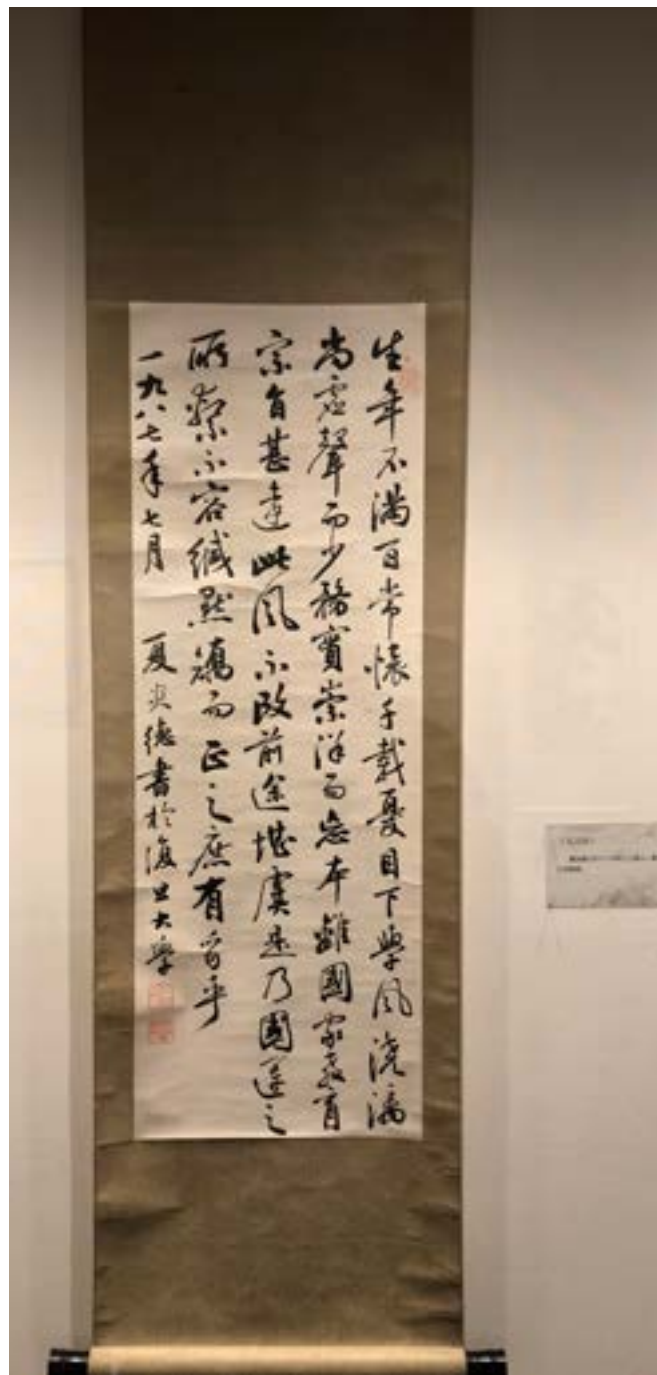 生年不满百常懷千載憂目下學风浇漓
尚虛聲而少務實崇洋而忘本離國家教育
宗旨甚遠此风不改前途堪虞是乃國運之
所繫不容缄默矯而正之庶有豸乎
一九八七年七月 夏炎德書於復旦大學